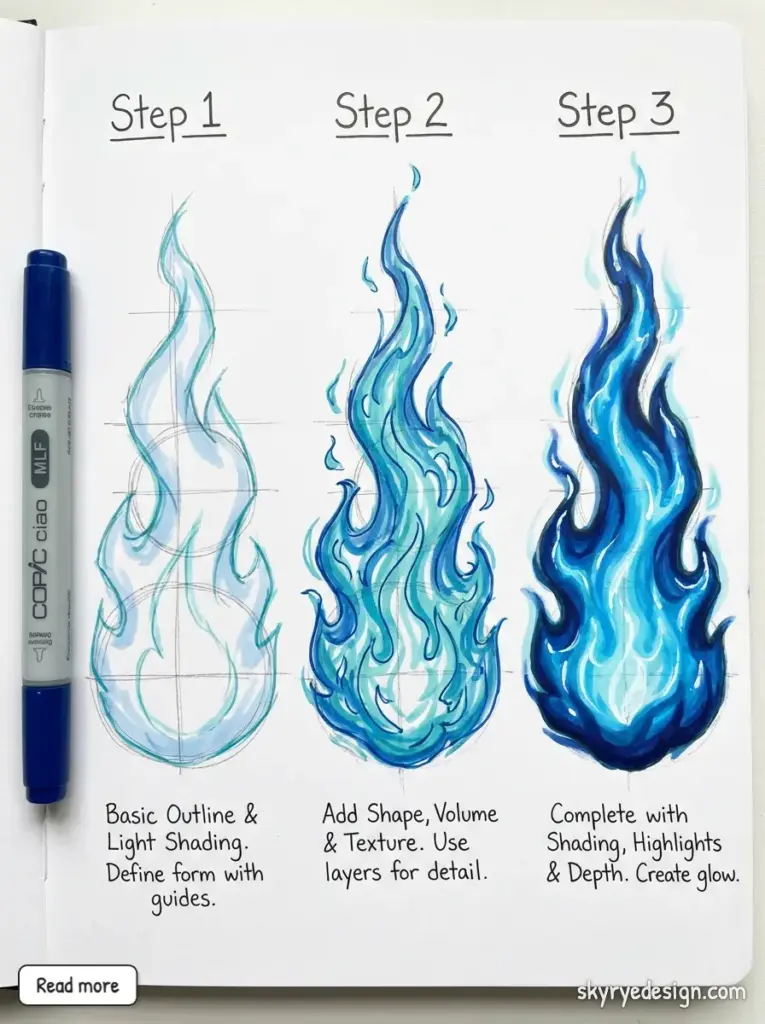 Step 1
Step 2
Step 3
COPIC ciao
MLF
Basic Outline &
Light Shading.
Define form with
guides.
Add Shape, Volume
& Texture. Use
layers for detail.
Complete with
Shading, Highlights
& Depth. Create glow.
Read more
skyryedesign.com